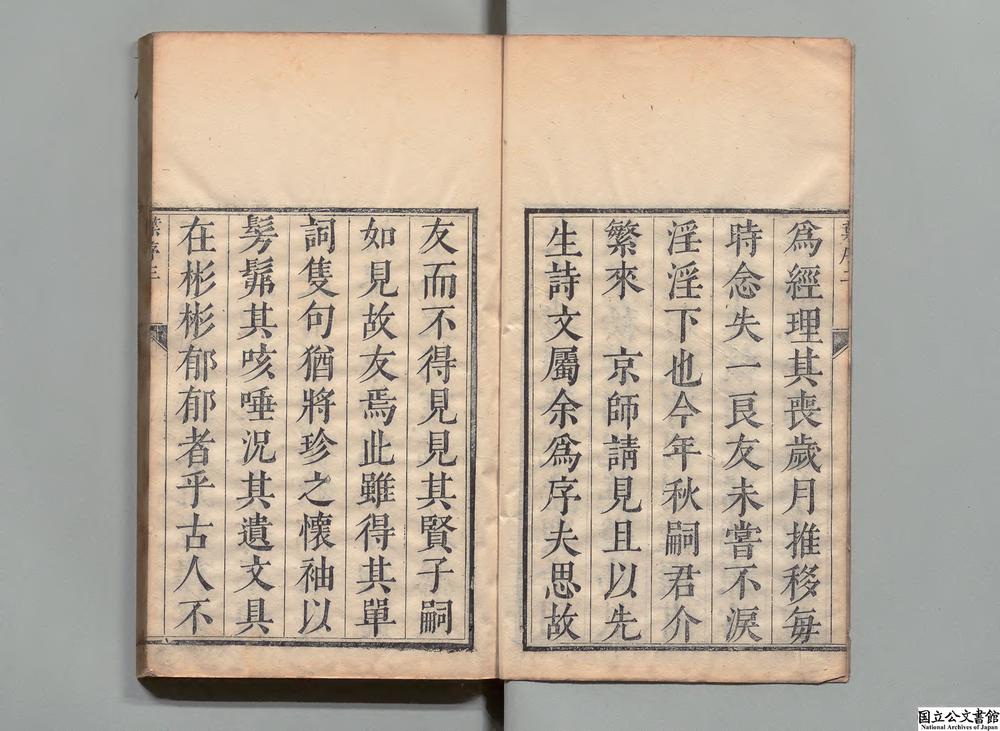 爲經理其喪歲月推移每
時念失一良友未嘗不淚
淫淫下也今年秋嗣君介
繁來　京師請見且以先
生詩文屬余爲序夫思故
友而不得見見其賢子嗣
如見故友焉此雖得其單
詞隻句猶將珍之懷袖以
髣髴其咳唾況其遺文具
在彬彬郁郁者乎古人不
葉序三
国立公文書館
National Archives of Japan